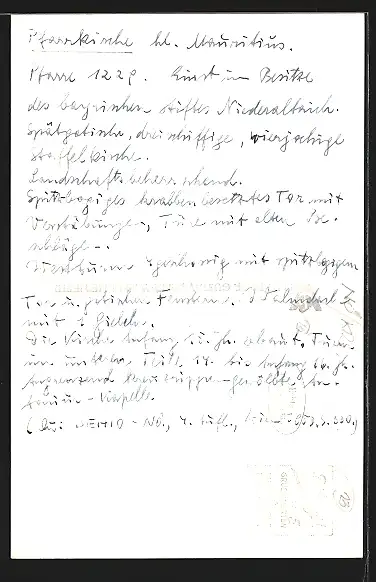 Pfarrkirche hl. Mauritius.
Pfarre 122?. Einst im Besitze
des bayrischen Stiftes Niederaltaich.
Spätgotische, dreischiffige, vierjochige
Staffelkirche.
Landschaftsbeherrschend.
Spitzbogiges krabbenbesetztes Tor mit
Verstäbungen, Türe mit alten Be-
schläge-.
Westturm 4geschossig mit spitzbogigem
Tor u. gotischen Fenstern.
mit 4 Giebeln.
Die Kirche Anfang 15. Jh. erbaut, Turm
im unteren Teile 14. bis Anfang 16. Jh.
Angrenzend kreuzrippengewölbte An-
Kapelle.
(Aus: DEHIO - NÖ., 4. Aufl., Wien 1953, S. 230.)